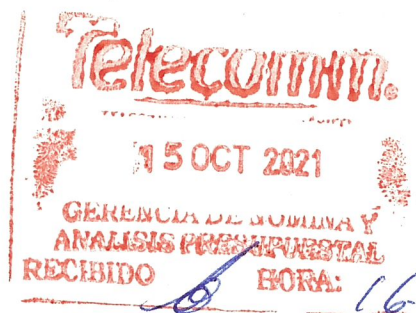 Telecomm®
15 OCT 2021
GERENCIA DE NOMINA Y
ANALISIS PRESUPUESTAL
RECIBIDO HORA: 16